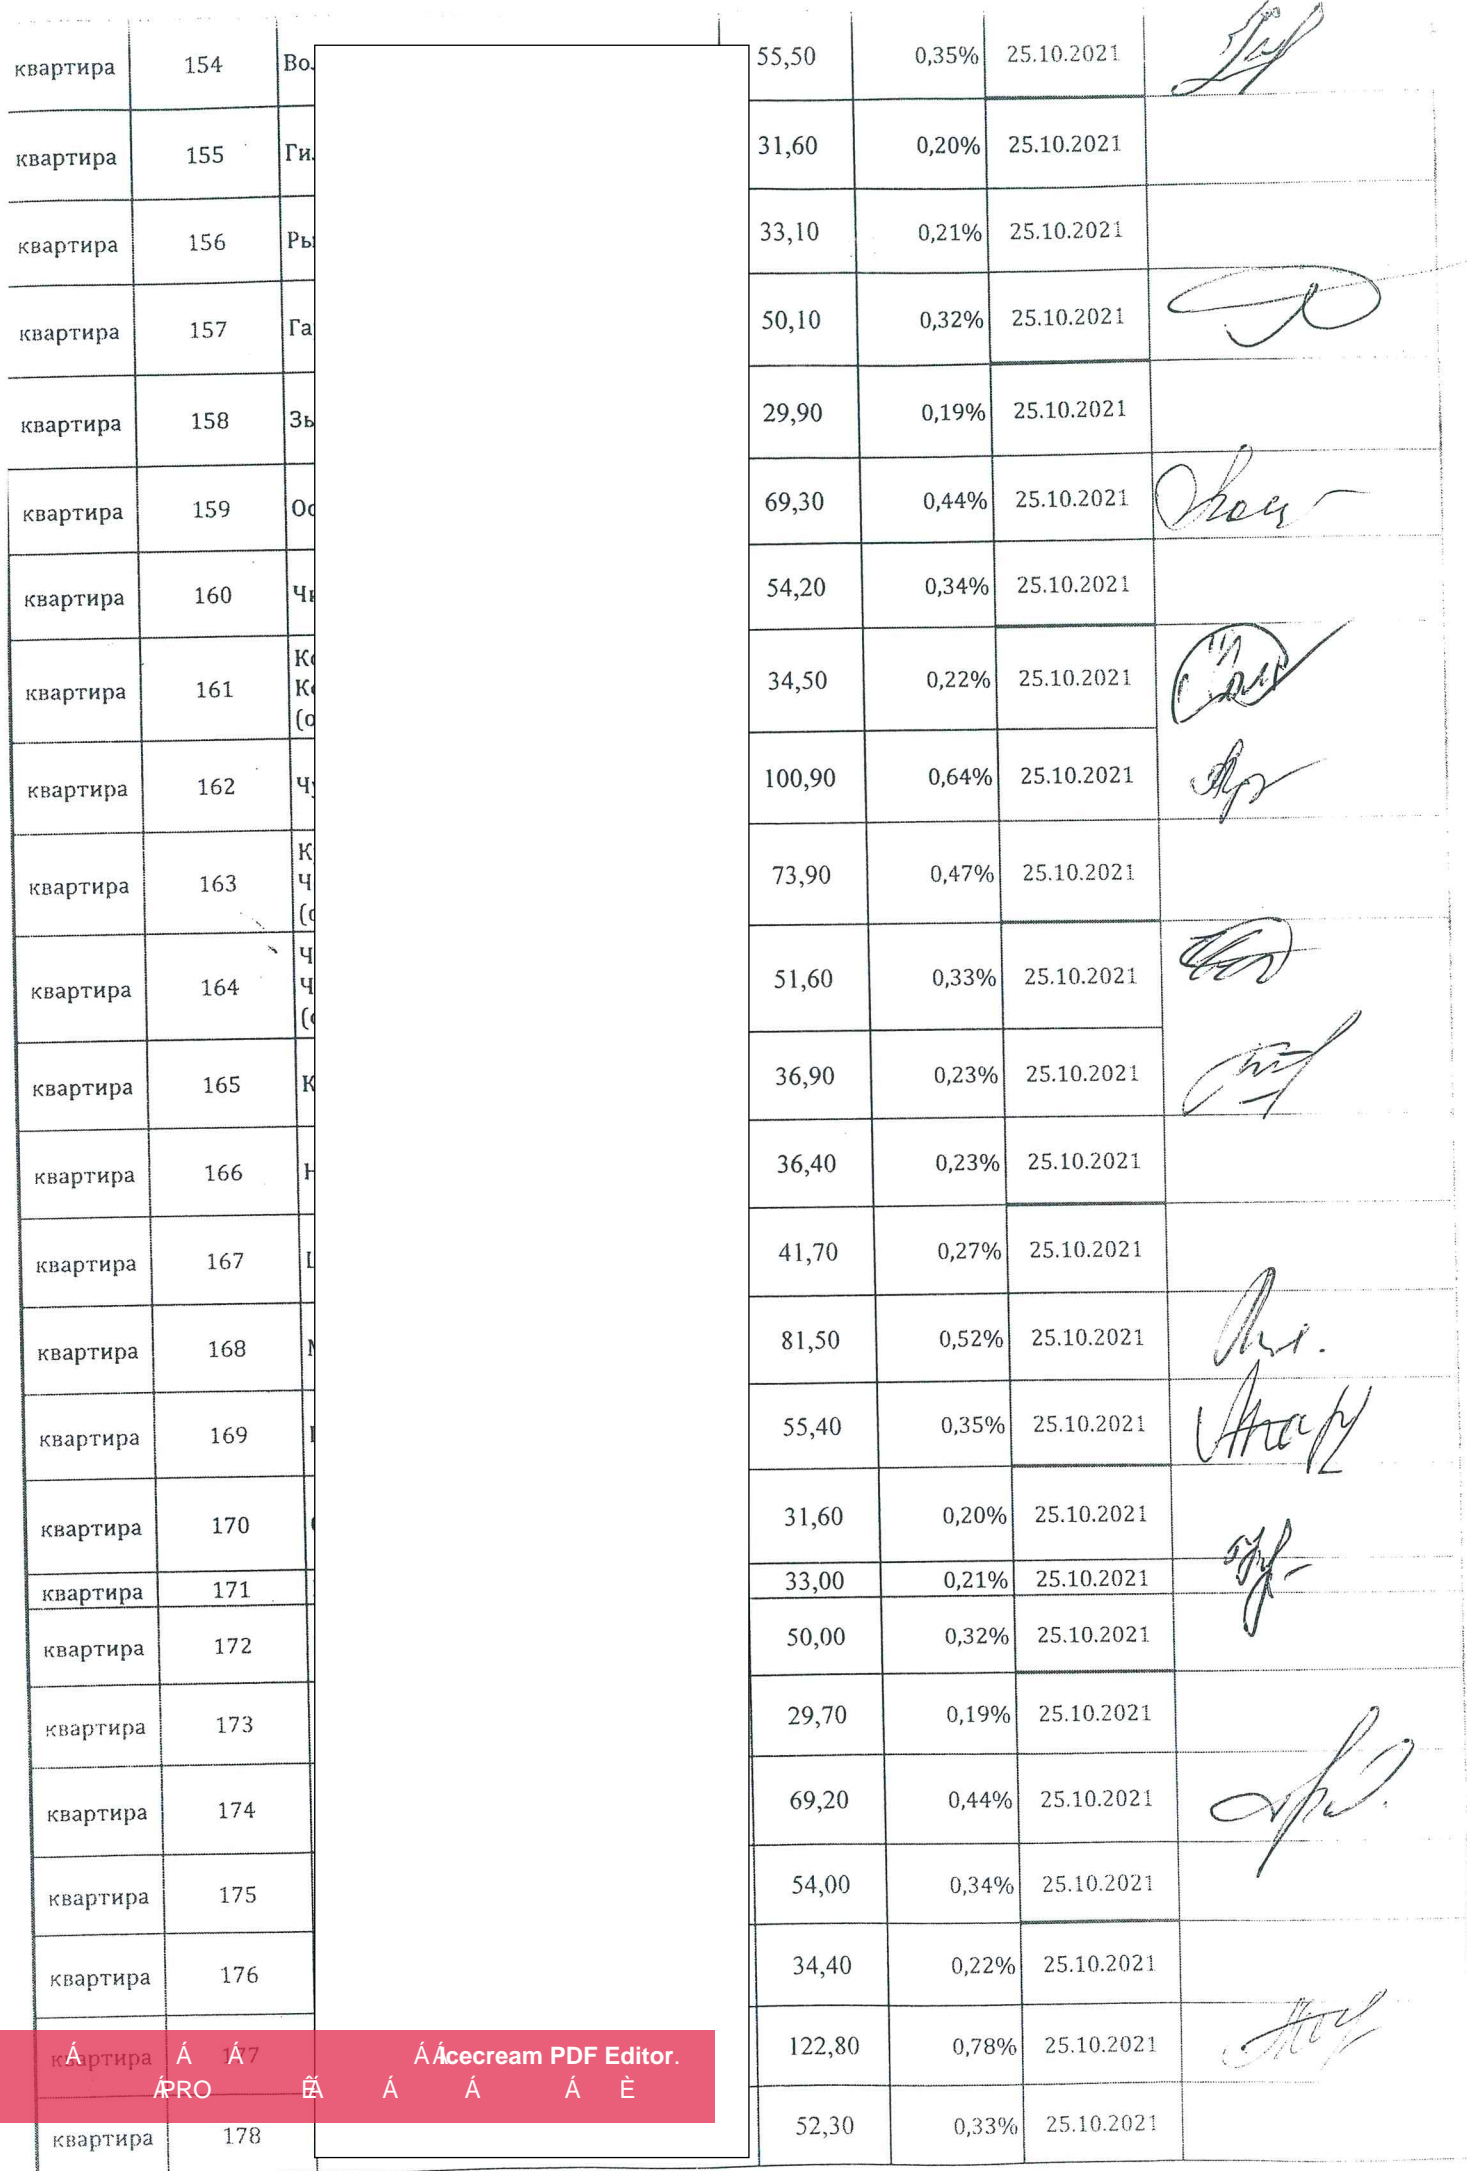 квартира 154 Во. 55,50 0,35% 25.10.2021
квартира 155 Ги. 31,60 0,20% 25.10.2021
квартира 156 Ры 33,10 0,21% 25.10.2021
квартира 157 Га 50,10 0,32% 25.10.2021
квартира 158 Зь 29,90 0,19% 25.10.2021
квартира 159 Ос 69,30 0,44% 25.10.2021
квартира 160 Чи 54,20 0,34% 25.10.2021
Ко
квартира 161 Ко 34,50 0,22% 25.10.2021
(о
квартира 162 Чу 100,90 0,64% 25.10.2021
К
квартира 163 Ч 73,90 0,47% 25.10.2021
(о
Ч
квартира 164 Ч 51,60 0,33% 25.10.2021
(о
квартира 165 К 36,90 0,23% 25.10.2021
квартира 166 Н 36,40 0,23% 25.10.2021
квартира 167 41,70 0,27% 25.10.2021
квартира 168 81,50 0,52% 25.10.2021
квартира 169 55,40 0,35% 25.10.2021
квартира 170 31,60 0,20% 25.10.2021
квартира 171 33,00 0,21% 25.10.2021
квартира 172 50,00 0,32% 25.10.2021
квартира 173 29,70 0,19% 25.10.2021
квартира 174 69,20 0,44% 25.10.2021
квартира 175 54,00 0,34% 25.10.2021
квартира 176 34,40 0,22% 25.10.2021
квартира 177 122,80 0,78% 25.10.2021
Icecream PDF Editor.
PRO
квартира 178 52,30 0,33% 25.10.2021